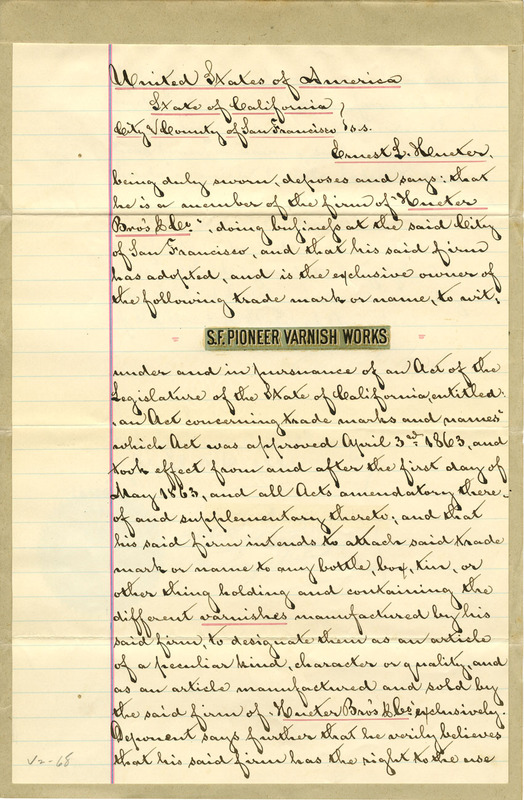 United States of America
State of California )
City & County of San Francisco ) s.s.
Ernest L. Hueter,
being duly sworn, deposes and says: that
he is a member of the firm of "Hueter
Bro's & Co.", doing business at the said City
of San Francisco, and that his said firm
has adopted, and is the exclusive owner of
the following trade mark or name, to wit:
S.F. PIONEER VARNISH WORKS
under and in pursuance of an Act of the
Legislature of the State of California, entitled:
"an Act concerning trade marks and names"
which Act was approved April 3rd 1863, and
took effect from and after the first day of
May 1863, and all Acts amendatory there-
of and supplementary thereto; and that
his said firm intends to attach said trade
mark or name to any bottle, box, tin, or
other thing holding and containing the
different varnishes manufactured by his
said firm, to designate them as an article
of a peculiar kind, character or quality, and
as an article manufactured and sold by
the said firm of "Hueter Bro's & Co." exclusively.
Deponent says further that he verily believes
that his said firm has the right to the use
V2-68